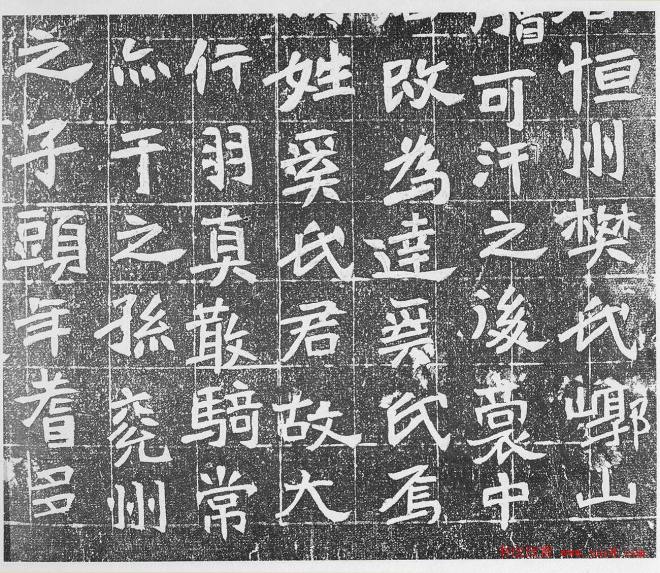 恒州樊氏崞山
膾可汗之後裔中
改為達奚氏焉
姓奚氏君故大
行羽真散騎常
亦干之孫兗州
之子頭年耆多